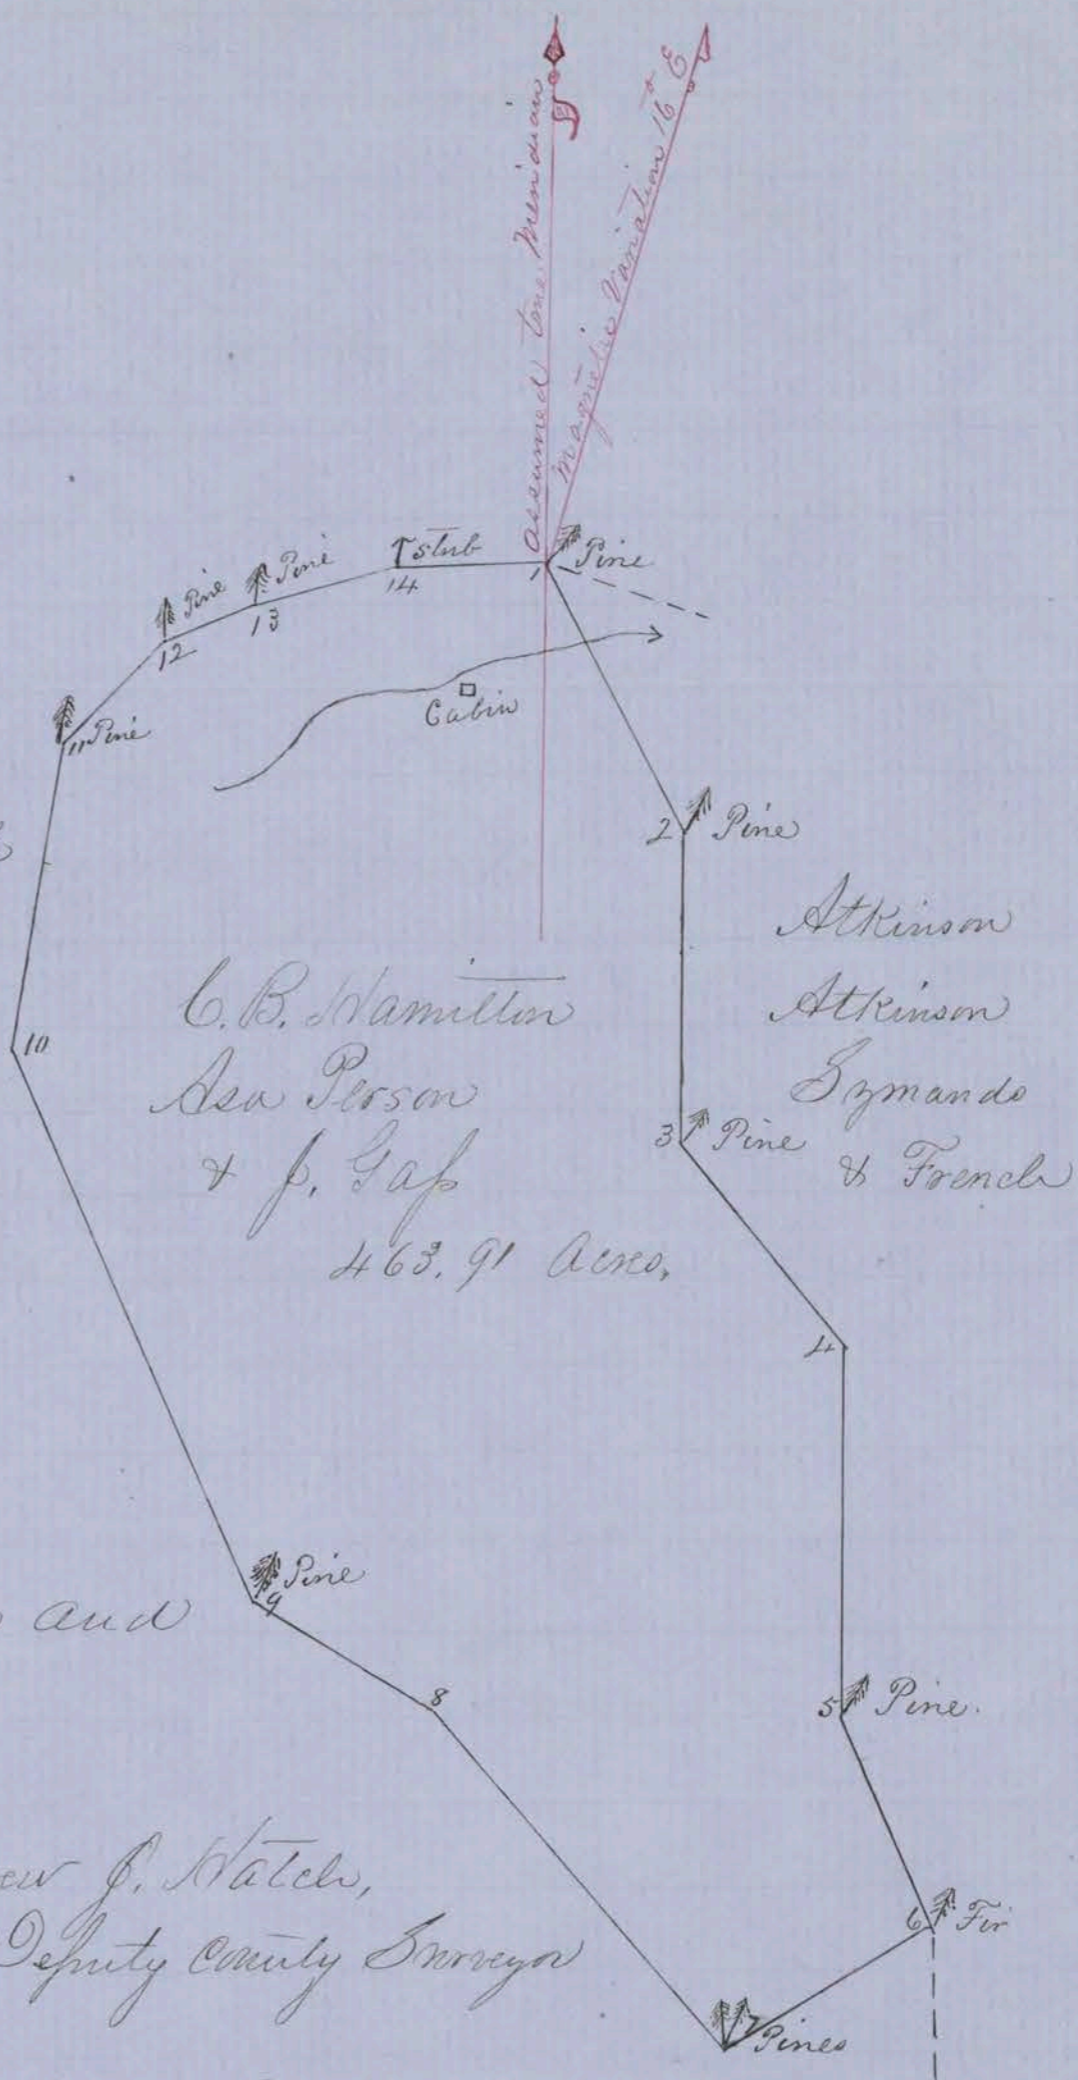 assumed true Meridian
Magnetic Variation 16° E
Stub
14
1
Pine
Pine
13
Pine
12
11 Pine
Cabin
2 Pine
Atkinson
Atkinson
& French
C. B. Hamilton
Asa Person
& J. Gaſs
463.91 Acres,
10
3 Pine
4
Pine
9
and
8
5 Pine.
J. Hatch,
Deputy County Surveyor
6 Fir
7 Pines